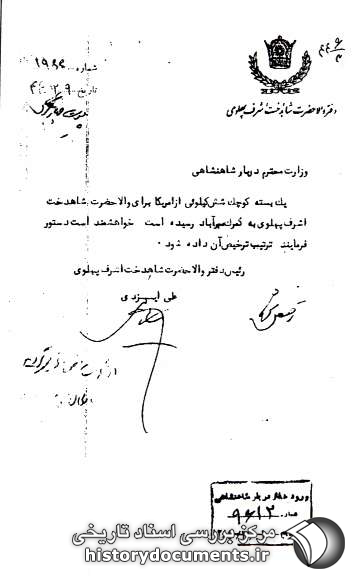 دفتر والاحضرت شاهدخت اشرف پهلوی
شماره
تاریخ
وزارت محترم دربار شاهنشاهی
یك بسته كوچك شش كیلوئی ازآمریكا برای والاحضرت شاهدخت
اشرف پهلوی به گمرك مهرآباد رسیده است خواهشمند است دستور
فرمایند ترتیب ترخیص آن داده شود ۰
رئیس دفتر والاحضرت شاهدخت اشرف پهلوی
علی ایزدی
ورود دفتر دربار شاهنشاهی
شماره ۹۶۱۲
مرکز بررسی اسناد تاریخی
historydocuments.ir